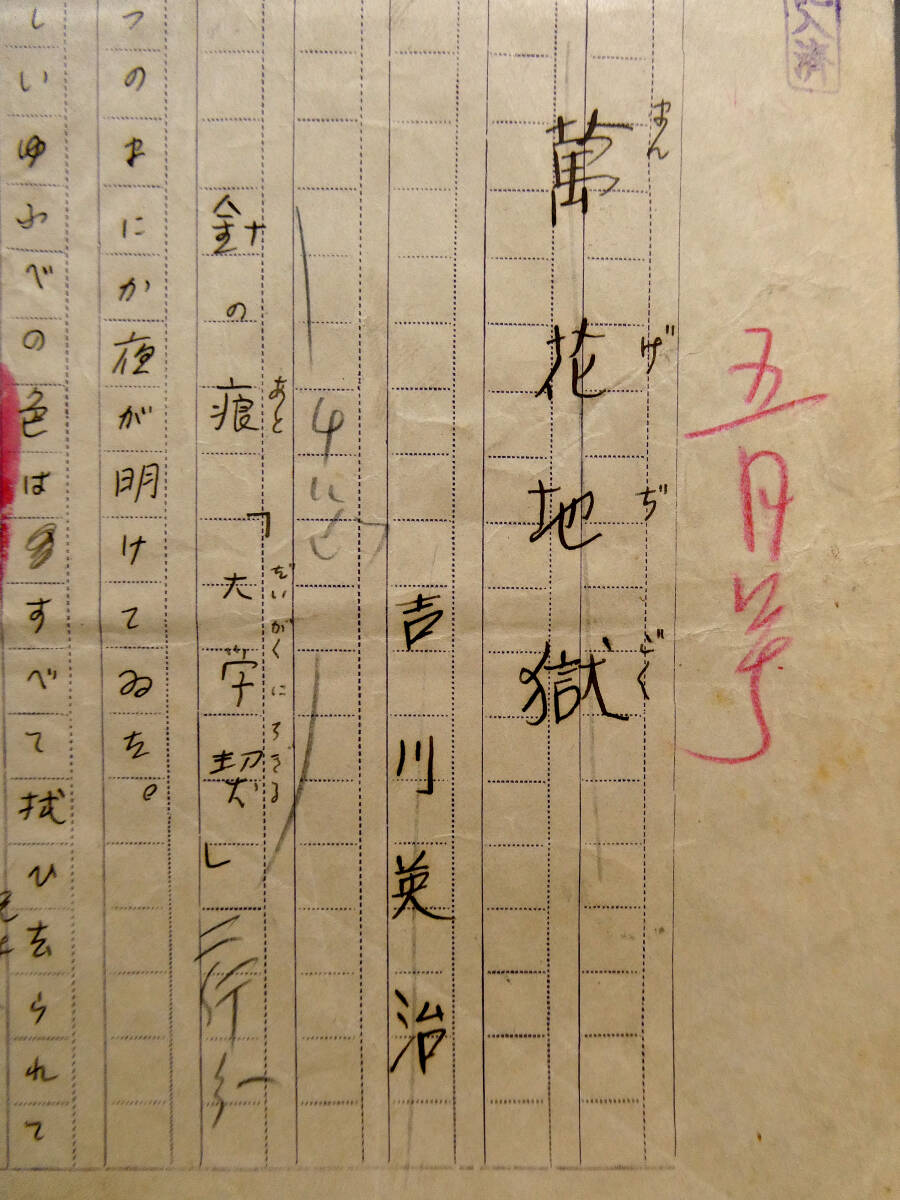 入済
五月号
萬花地獄
まんげぢごく
吉川英治
4に
針の痕「大学契」
あと だいがくにちぎる
三行分
つのまにか夜が明けてゐた。
しいゆふべの色はすべて拭ひ去られて